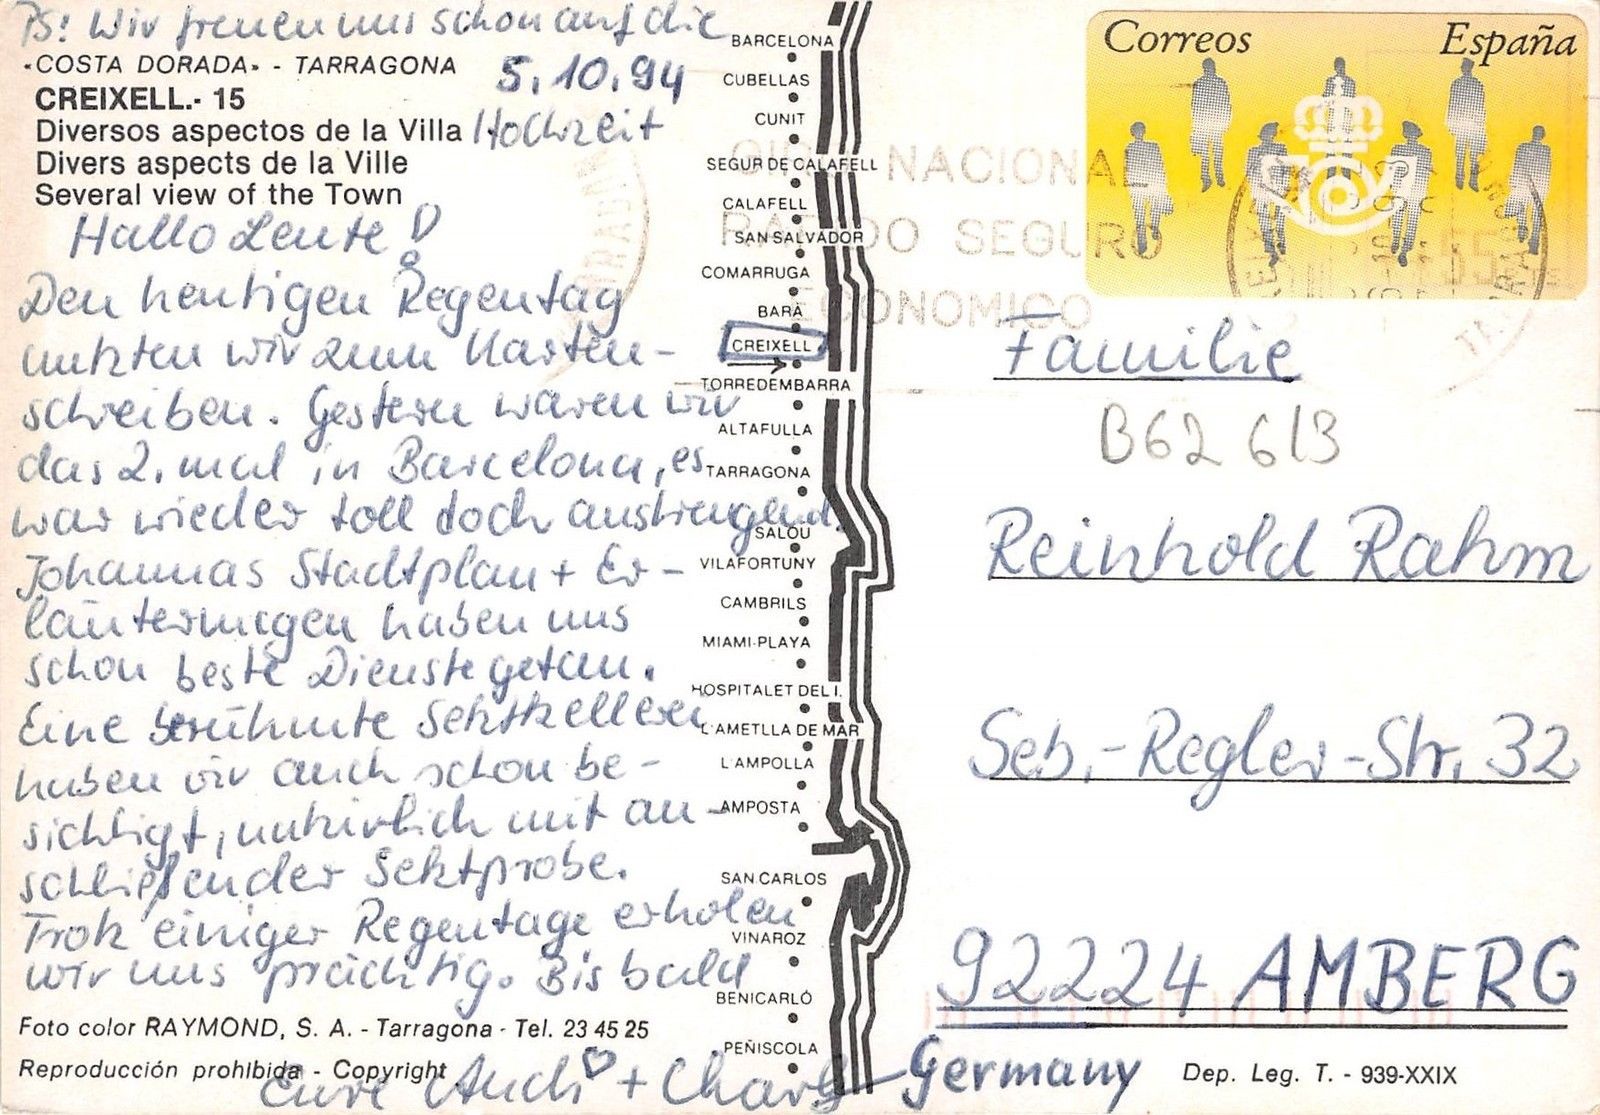 PS: Wir freuen uns schon auf die
«COSTA DORADA» - TARRAGONA
5.10.94
CREIXELL.- 15
Diversos aspectos de la Villa
Hochzeit
Divers aspects de la Ville
Several view of the Town
Hallo Leute!
Den heutigen Regentag
nutzten wir zum Karten-
schreiben. Gestern waren wir
das 2. mal in Barcelona, es
war wieder toll doch anstrengend.
Johannas Stadtplan + Er-
läuterungen haben uns
schon beste Dienste getan.
Eine berühmte Sektkellerei
haben wir auch schon be-
sichtigt, natürlich mit an-
schließender Sektprobe.
Trotz einiger Regentage erholen
wir uns prächtig. Bis bald
Foto color RAYMOND, S. A. - Tarragona - Tel. 23 45 25
Reproducción prohibida - Copyright
Eure Andi + Charly
BARCELONA
CUBELLAS
CUNIT
SEGUR DE CALAFELL
CALAFELL
SAN SALVADOR
COMARRUGA
BARÁ
CREIXELL
TORREDEMBARRA
ALTAFULLA
TARRAGONA
SALOU
VILAFORTUNY
CAMBRILS
MIAMI-PLAYA
HOSPITALET DEL I.
L'AMETLLA DE MAR
L'AMPOLLA
AMPOSTA
SAN CARLOS
VINAROZ
BENICARLÓ
PEÑISCOLA
Correos España
GIRO NACIONAL
RAPIDO SEGURO
ECONOMICO
Familie
B62 613
Reinhold Rahm
Seb.-Regler-Str. 32
92224 AMBERG
Germany
Dep. Leg. T. - 939-XXIX